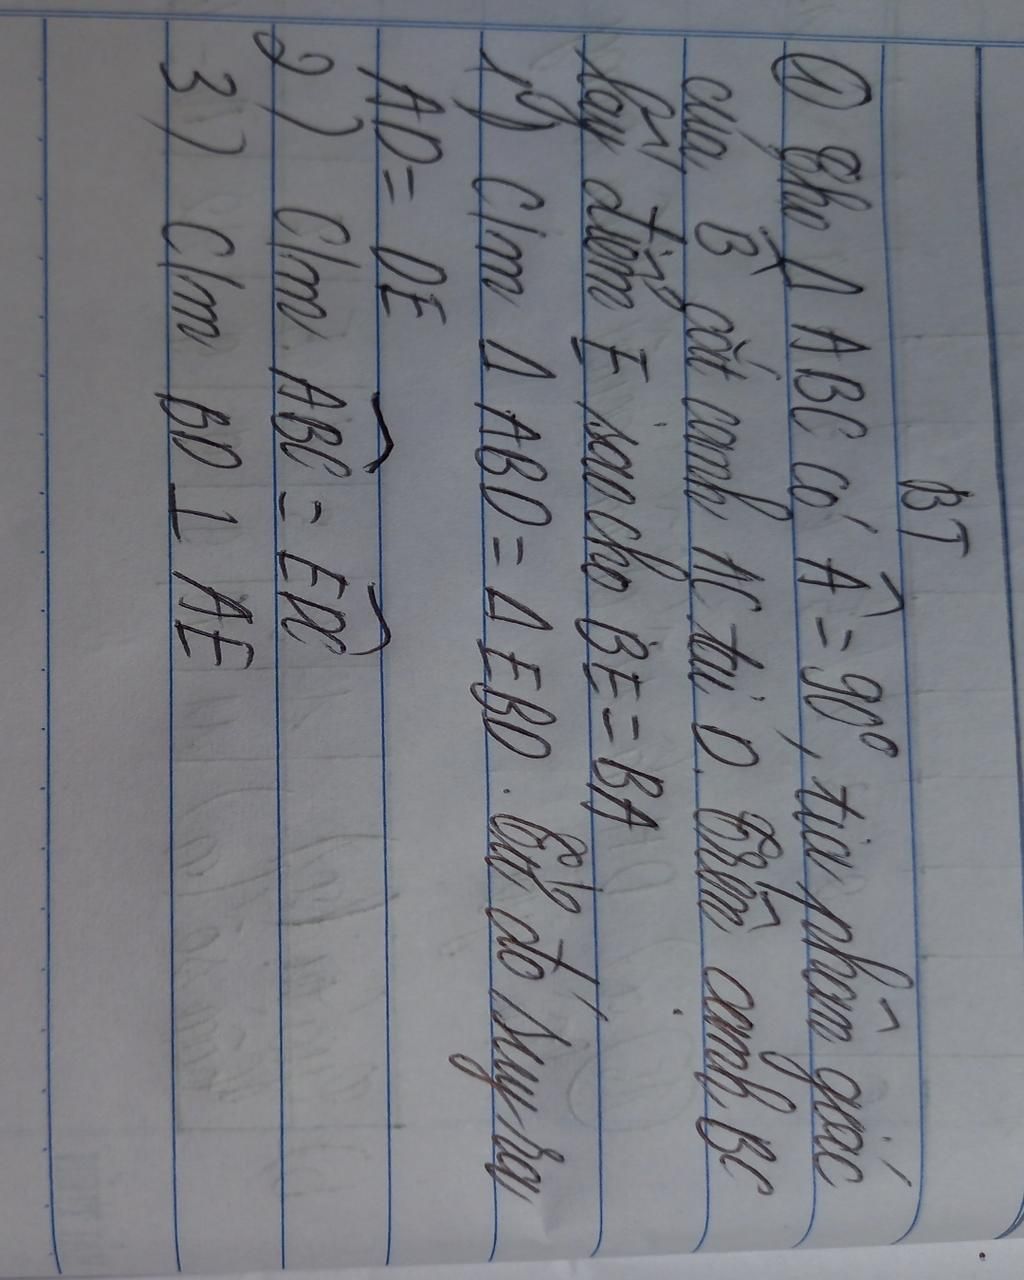 BT
① Cho Δ ABC có Â = 90⁰, tia phân giác
của B̂ cắt cạnh AC tại D. Trên cạnh BC
lấy điểm E sao cho BE = BA
1) C/m Δ ABD = Δ EBD. Từ đó suy ra
AD = DE
2) C/m ABC = EDC
3) C/m BD ⊥ AE